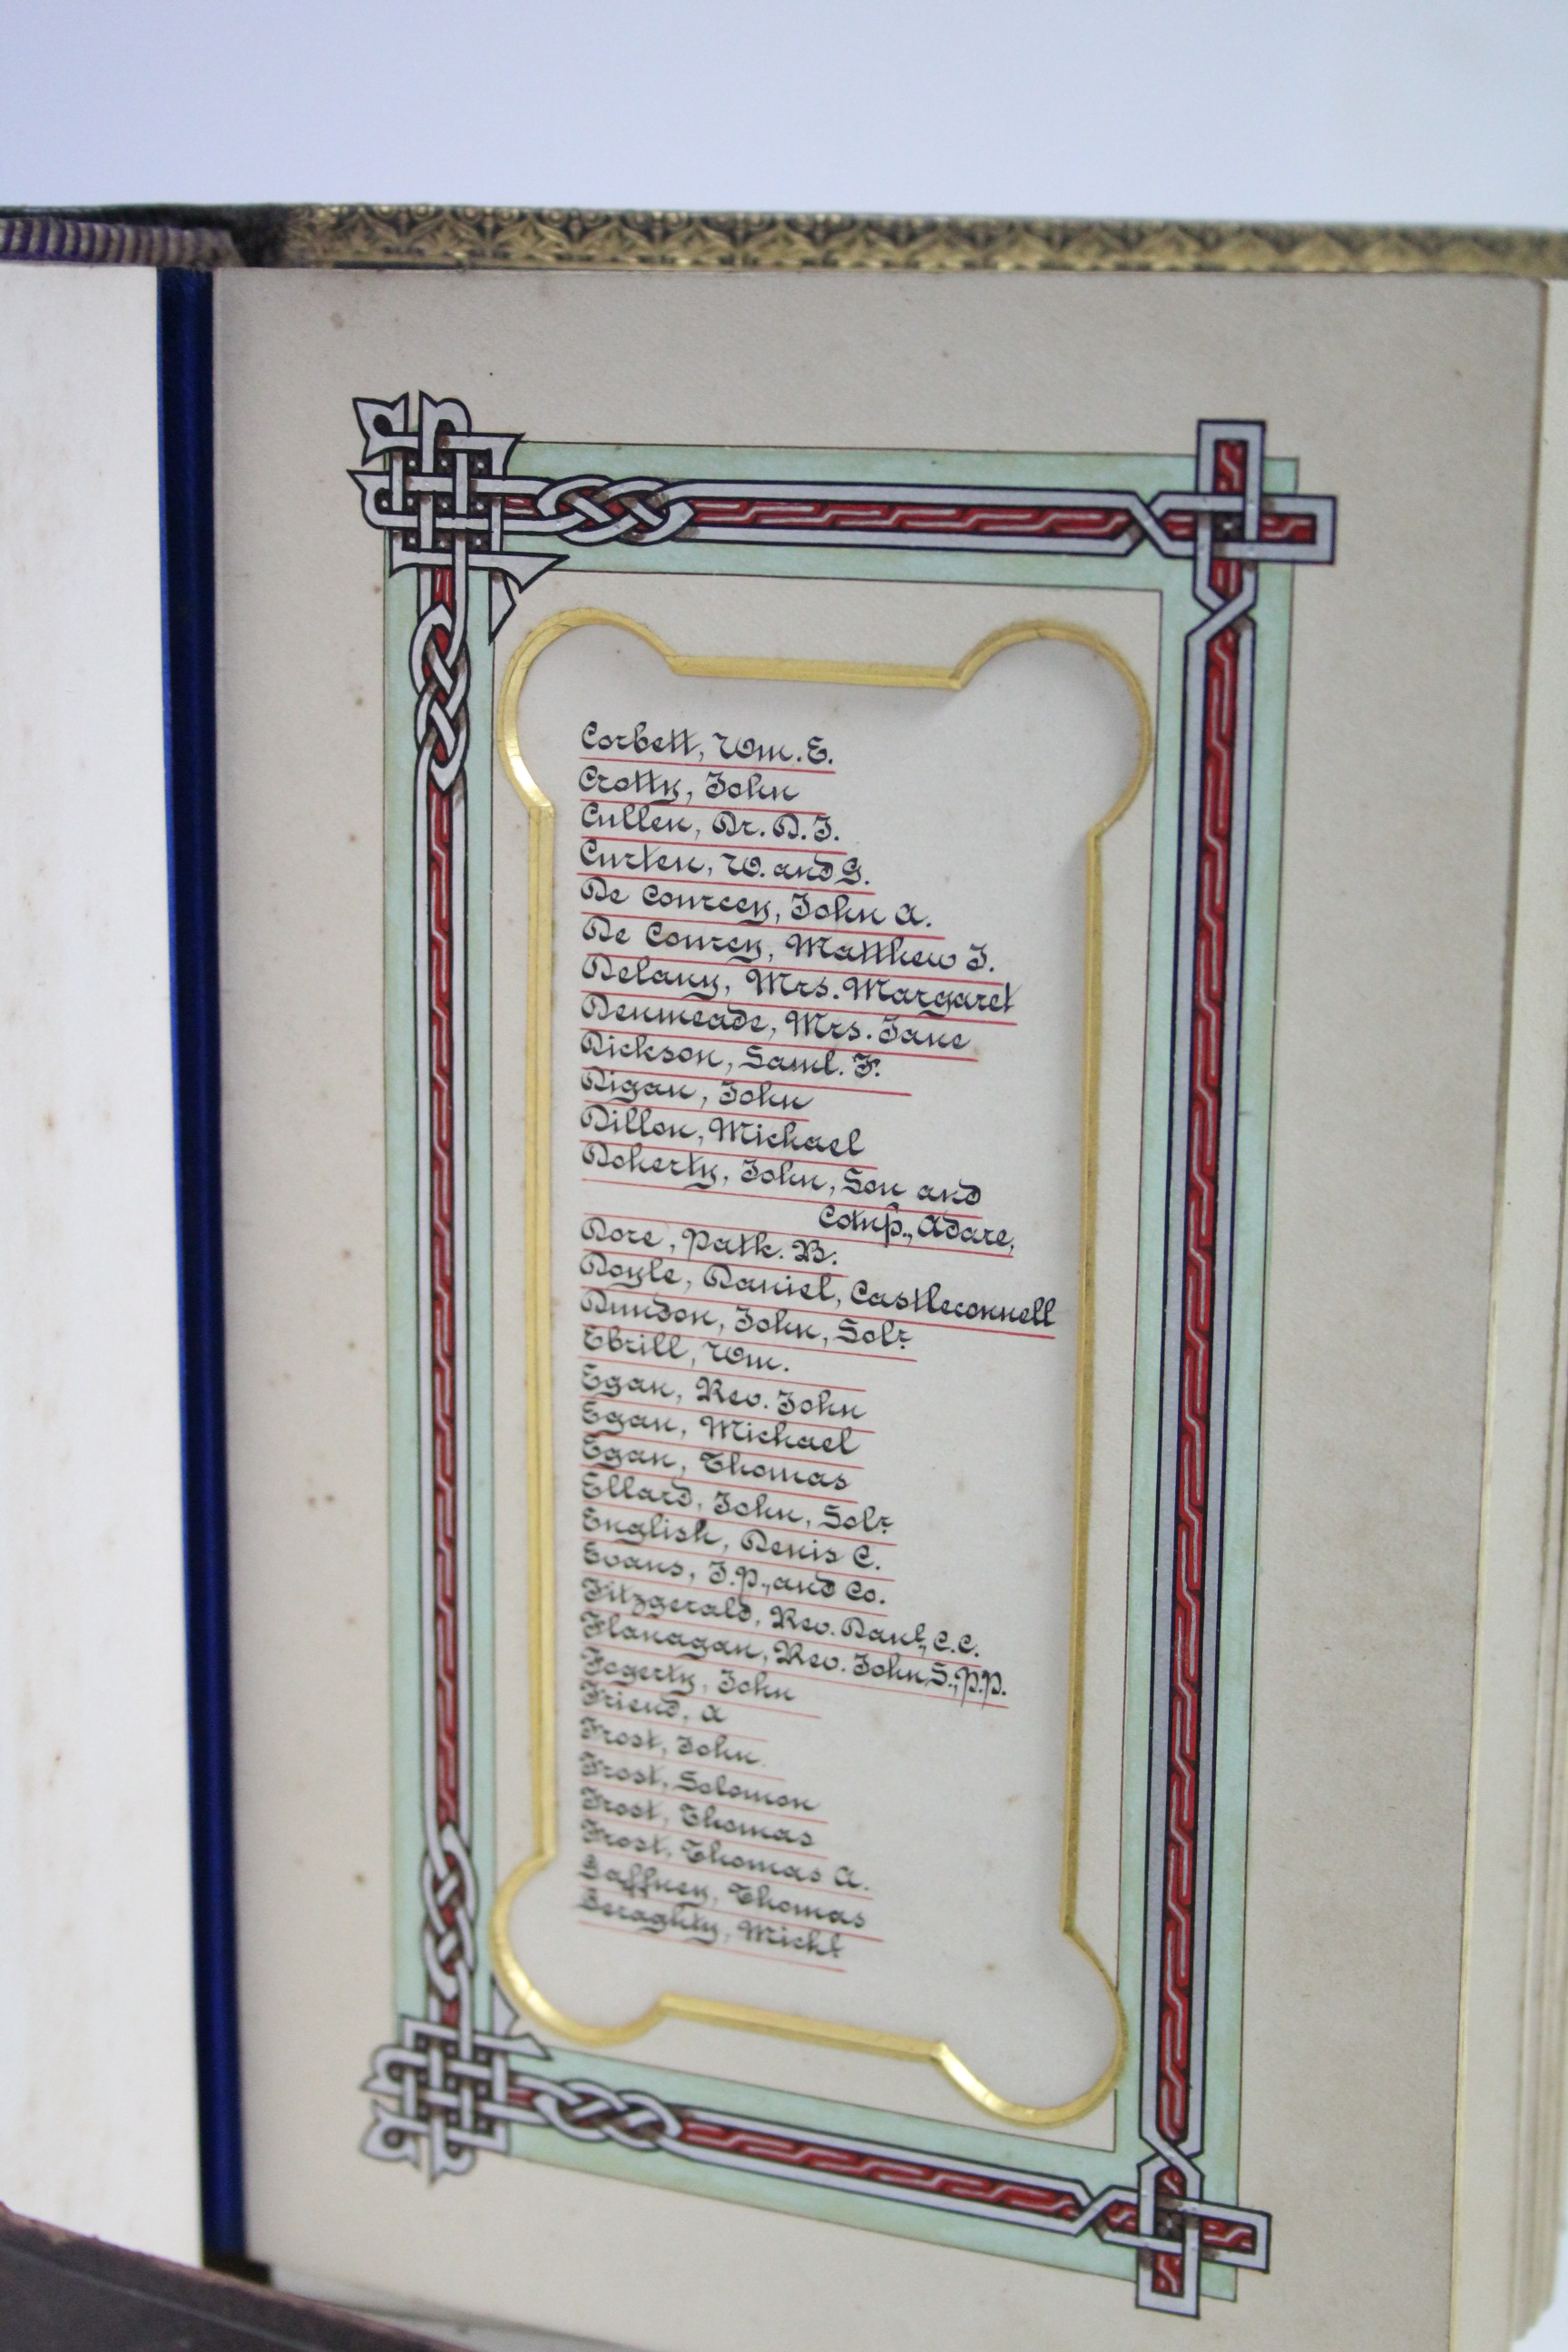 Corbett, Wm. E.
Crotty, John
Cullen, Dr. D. J.
Curten, W. and G.
De Courcey, John A.
De Courcy, Matthew J.
Delany, Mrs. Margaret
Denmeade, Mrs. Jane
Dickson, Saml. F.
Digan, John
Dillon, Michael
Doherty, John, Son and
Comp., Adare,
Dore, Patk. B.
Doyle, Daniel, Castleconnell
Dundon, John, Solr
Ebrill, Wm.
Egan, Rev. John
Egan, Michael
Egan, Thomas
Ellard, John, Solr
English, Denis C.
Evans, J. P., and Co.
Fitzgerald, Rev. Danl, C.C.
Flanagan, Rev. John S., P.P.
Fogerty, John
Friend, a
Frost, John
Frost, Solomon
Frost, Thomas
Frost, Thomas A.
Gaffney, Thomas
Geraghty, Michl